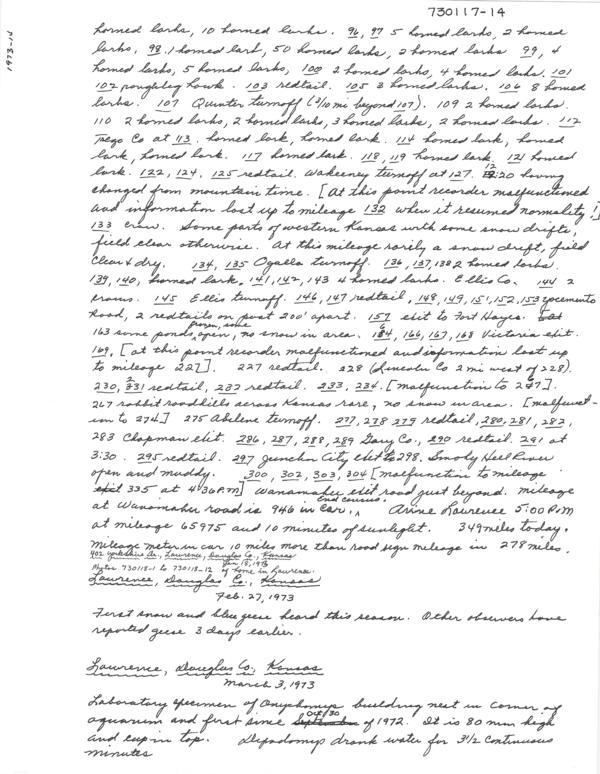 730117-14
1973-14
horned larks, 10 horned larks. 96, 97 5 horned larks, 2 horned
larks, 98. 1 horned lark, 50 horned larks, 2 horned larks 99, 4
horned larks, 5 horned larks, 100 2 horned larks, 4 horned larks. 101
102 roughleg hawk. 103 redtail. 105 3 horned larks. 106 8 horned
larks. 107 Quinter turnoff (3/10 mi beyond 107). 109 2 horned larks.
110 2 horned larks, 2 horned larks, 3 horned larks, 2 horned larks. 112
Trego Co at 113. horned lark, horned lark. 114 horned lark, horned
lark, horned lark. 117 horned lark. 118, 119 horned lark 121 horned
lark. 122, 124. 125 redtail. Wakeeney turnoff at 127. 12:20 having
changed from mountain time. [At this point recorder malfunctioned
and information lost up to mileage 132 when it resumed normality!]
133 crow. Some parts of western Kansas with some snow drifts,
field clear otherwise. At this mileage rarily a snow drift, field
clear & dry. 134, 135 Ogalla turnoff. 136, 137, 138 2 horned larks.
139, 140, horned lark. 141, 142, 143 4 horned larks. Ellis Co. 144 2
crows. 145 Ellis turnoff. 146, 147 redtail, 148, 149, 151, 152, 153 Yocemento
Road, 2 redtails on post 200' apart. 157 exit to Fort Hayes.
163 some ponds frozen, some open, no snow in area. 164, 166, 167, 168 Victoria exit.
169. [at this point recorder malfunctioned and information lost up
to mileage 227]. 227 redtail. 228 (Lincoln Co 2 mi west of 228).
230, 231 redtail, 232 redtail. 233, 234. [malfunction to 267].
267 rabbit roadkills across Kansas rare, no snow in area. [malfunct-
ion to 274] 275 Abilene turnoff. 277, 278 279 redtail, 280, 281, 282,
283 Chapman exit. 286, 287, 288, 289 Geary Co., 290 redtail. 291 at
3:30. 295 redtail. 297 Junction City exit to 298. Smoky Hill River
open and muddy. 300, 302, 303, 304 [malfunction to mileage
exit 335 at 4:36 P.M] Wanamaker exit road just beyond. mileage
at Wanamaker road is 946 in car. End census. Arrive Lawrence 5:00 P.M
at mileage 65975 and 10 minutes of sunlight. 349 miles today.
Mileage meter in car 10 miles more than road sign mileage in 278 miles.
402 Yorkshire Dr., Lawrence, Douglas Co., Kansas
Jan 18, 1973
730118-1 to 730118-12 at home in Lawrence.
Lawrence, Douglas Co., Kansas
Feb. 27, 1973
First snow and blue geese heard this season. Other observers have
reported geese 3 days earlier.
Lawrence, Douglas Co., Kansas
March 3, 1973
Laboratory specimen of Onychomys building nest in corner of
aquarium and first since September Oct 30 of 1972. It is 80 mm high
and cup in top. Dipodomys drank water for 3 1/2 continuous
minutes